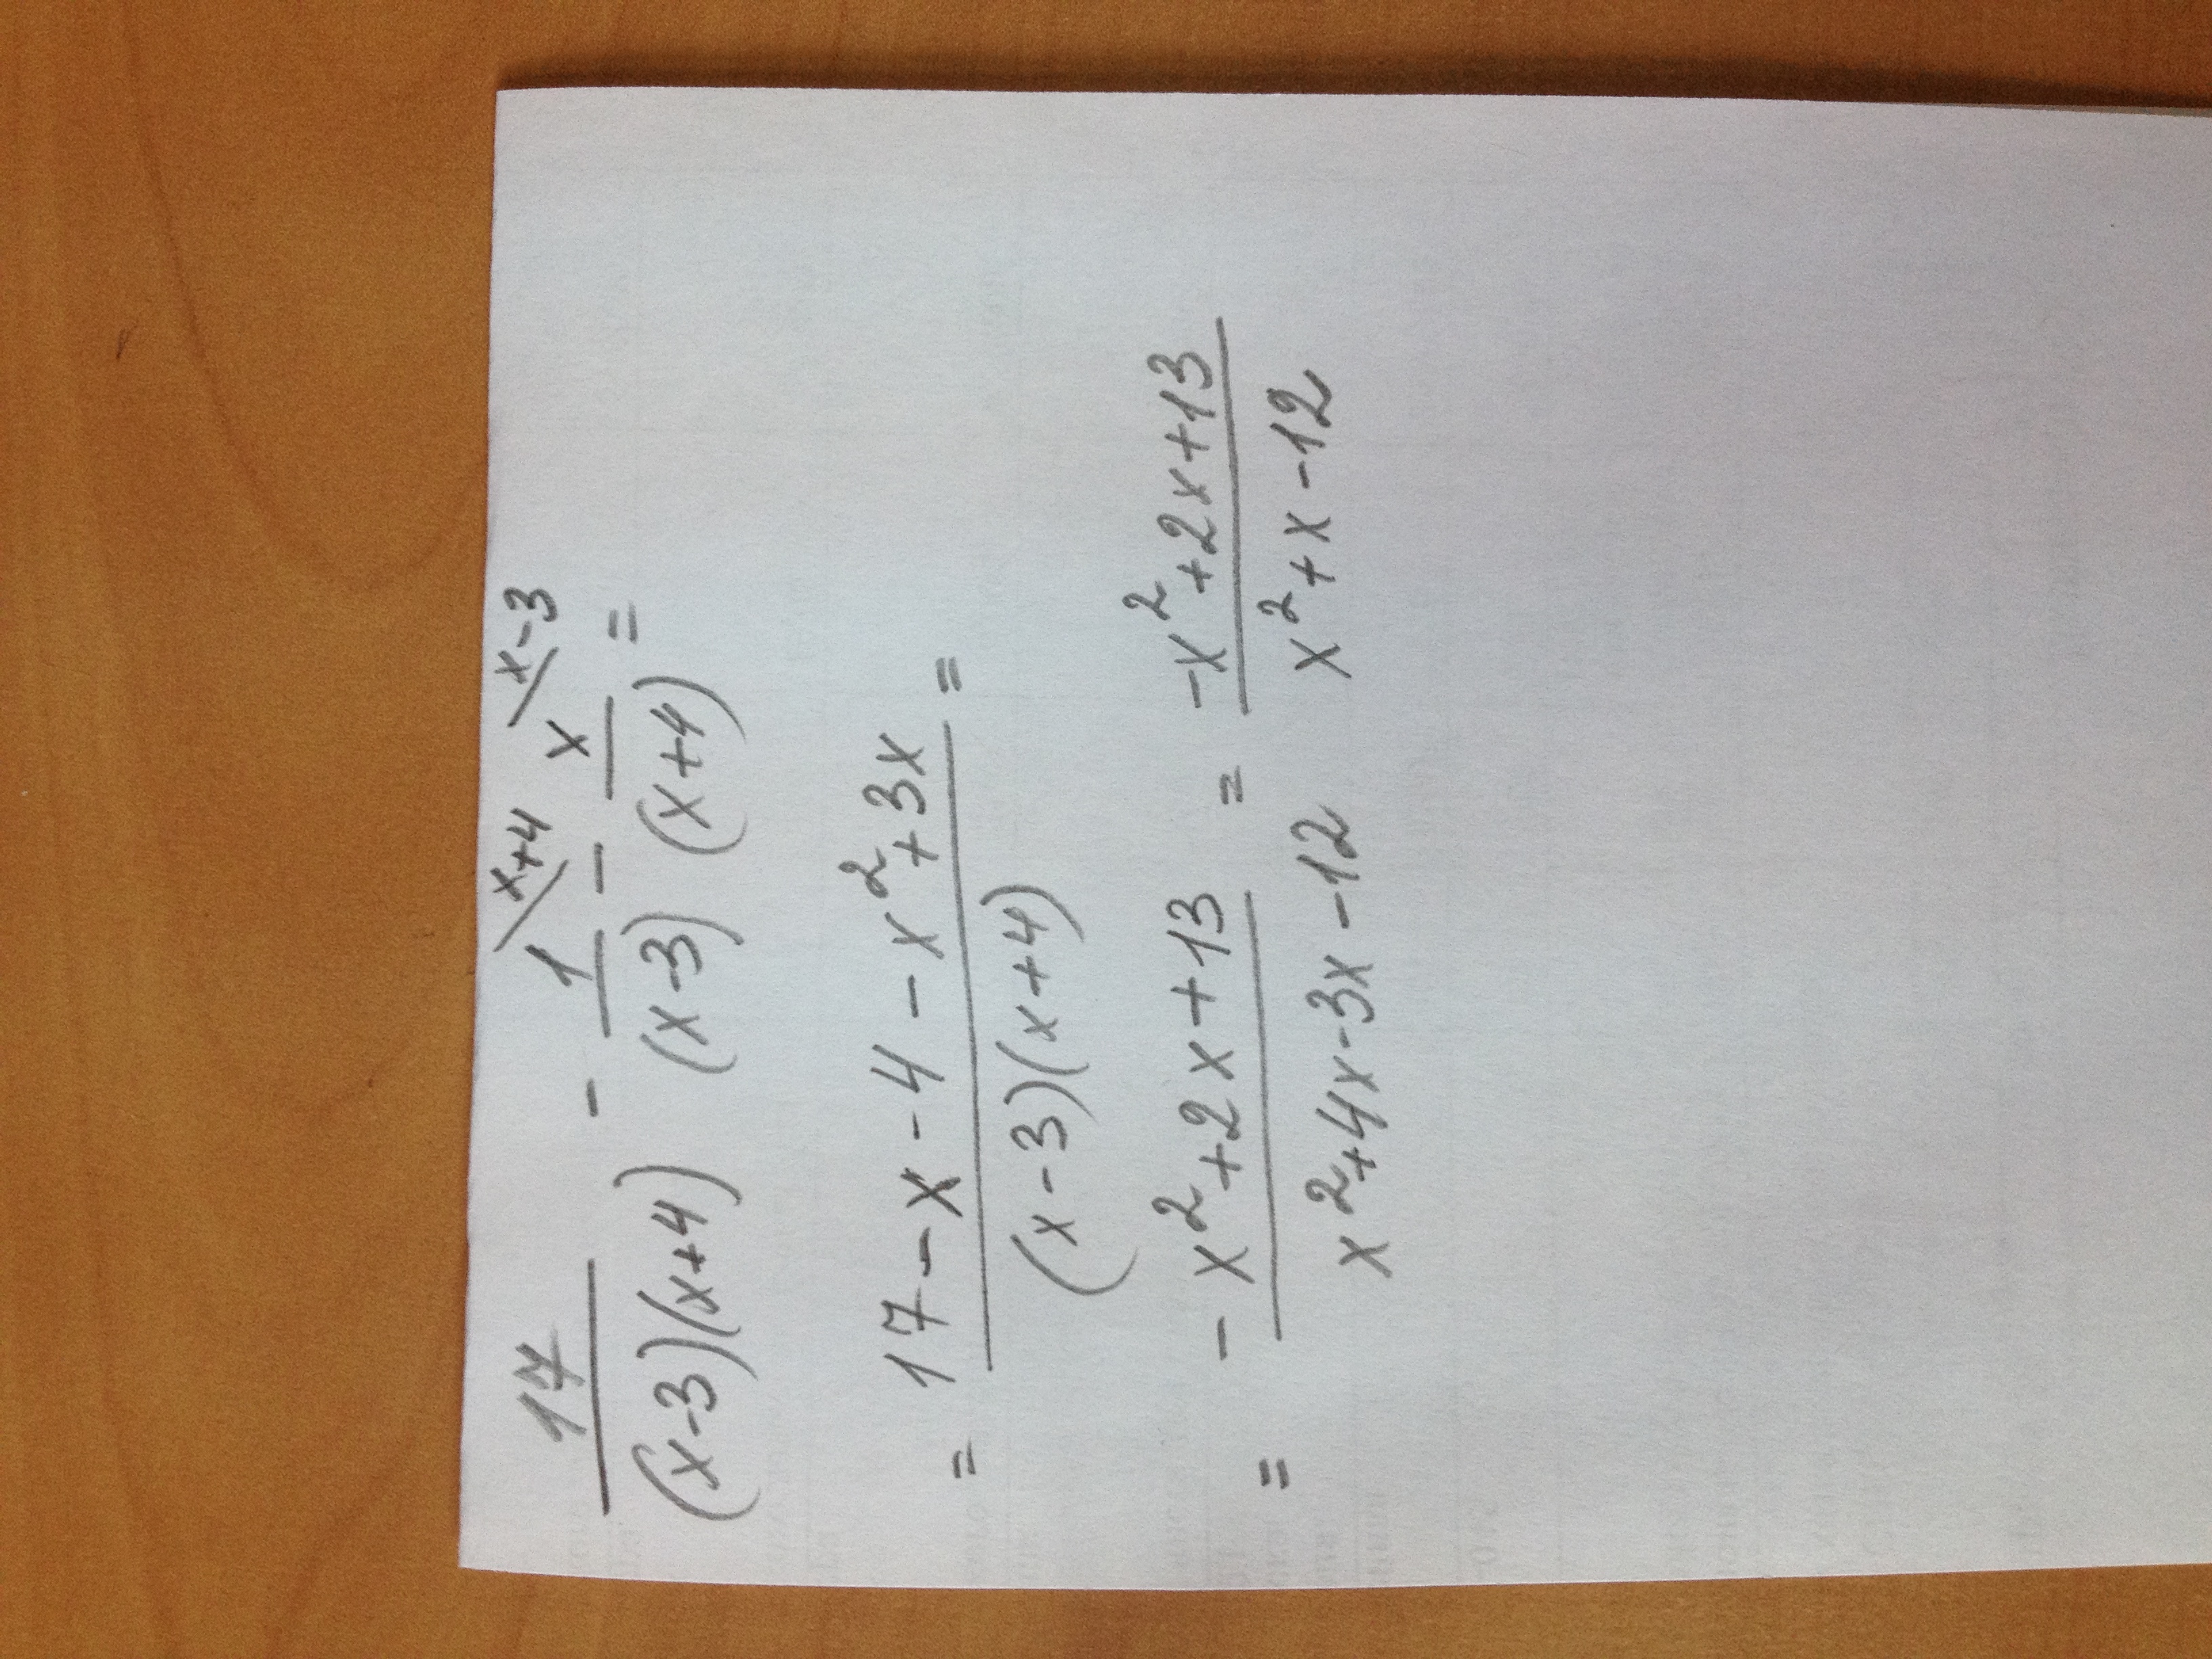 17/((x-3)(x+4)) - 1\x+4/(x-3) - x\x-3/(x+4) =
= (17-x-4-x²+3x)/((x-3)(x+4)) =
= (-x²+2x+13)/(x²+4x-3x-12) = (-x²+2x+13)/(x²+x-12)